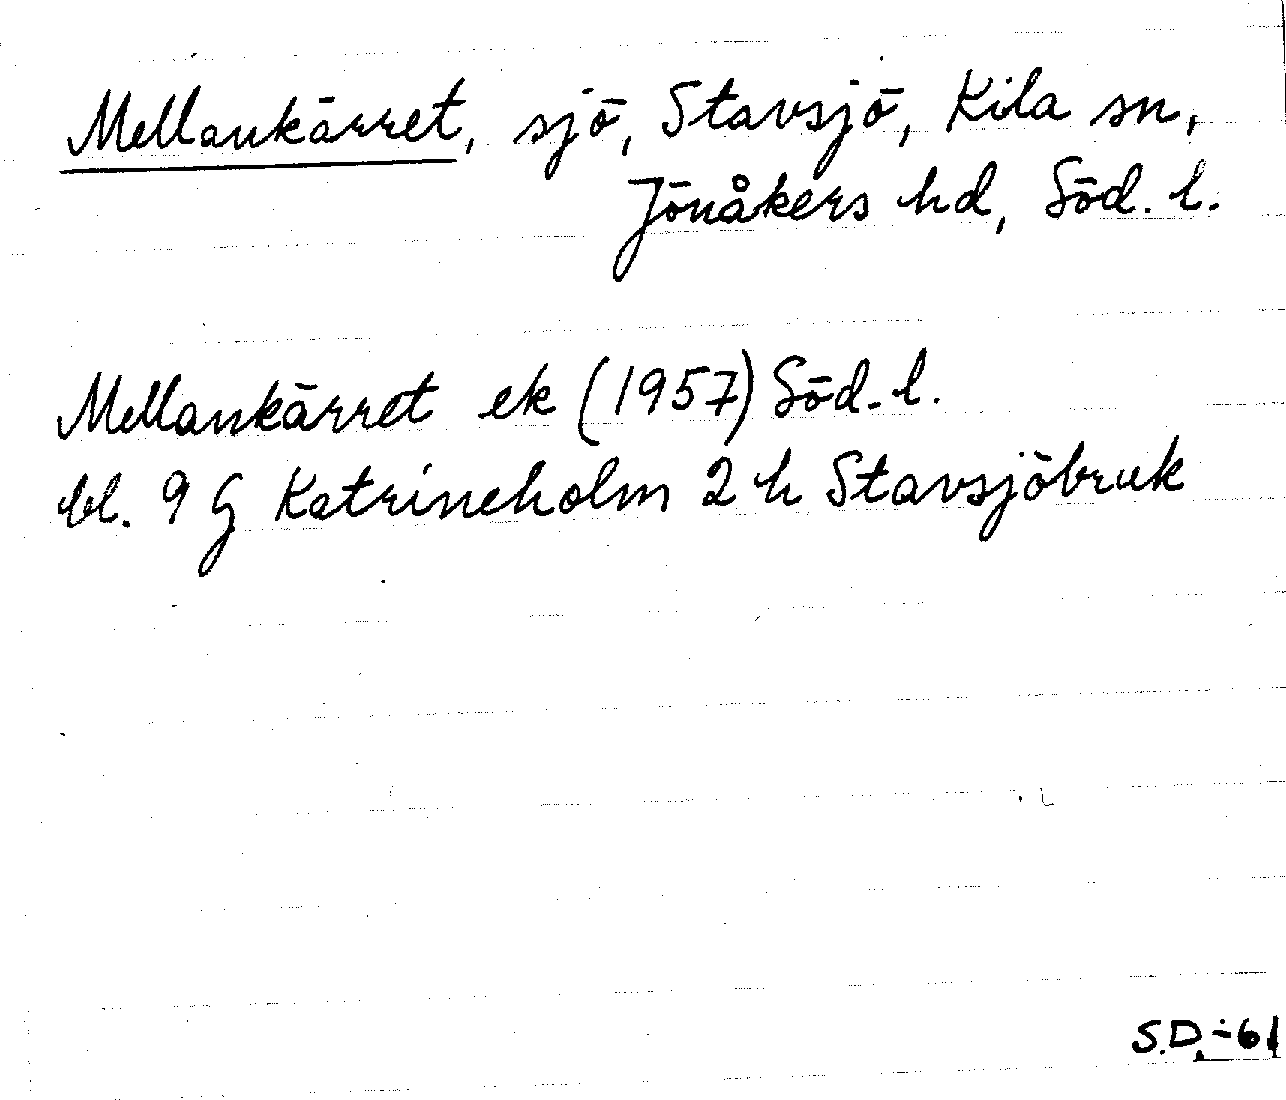 Mellankärret, sjö, Stavsjö, Kila sn,
Jönåkers hd, Söd. l.
Mellankärret ek (1957) Söd. l.
bl. 9 G Katrineholm 2 h Stavsjöbruk
S.D. -61